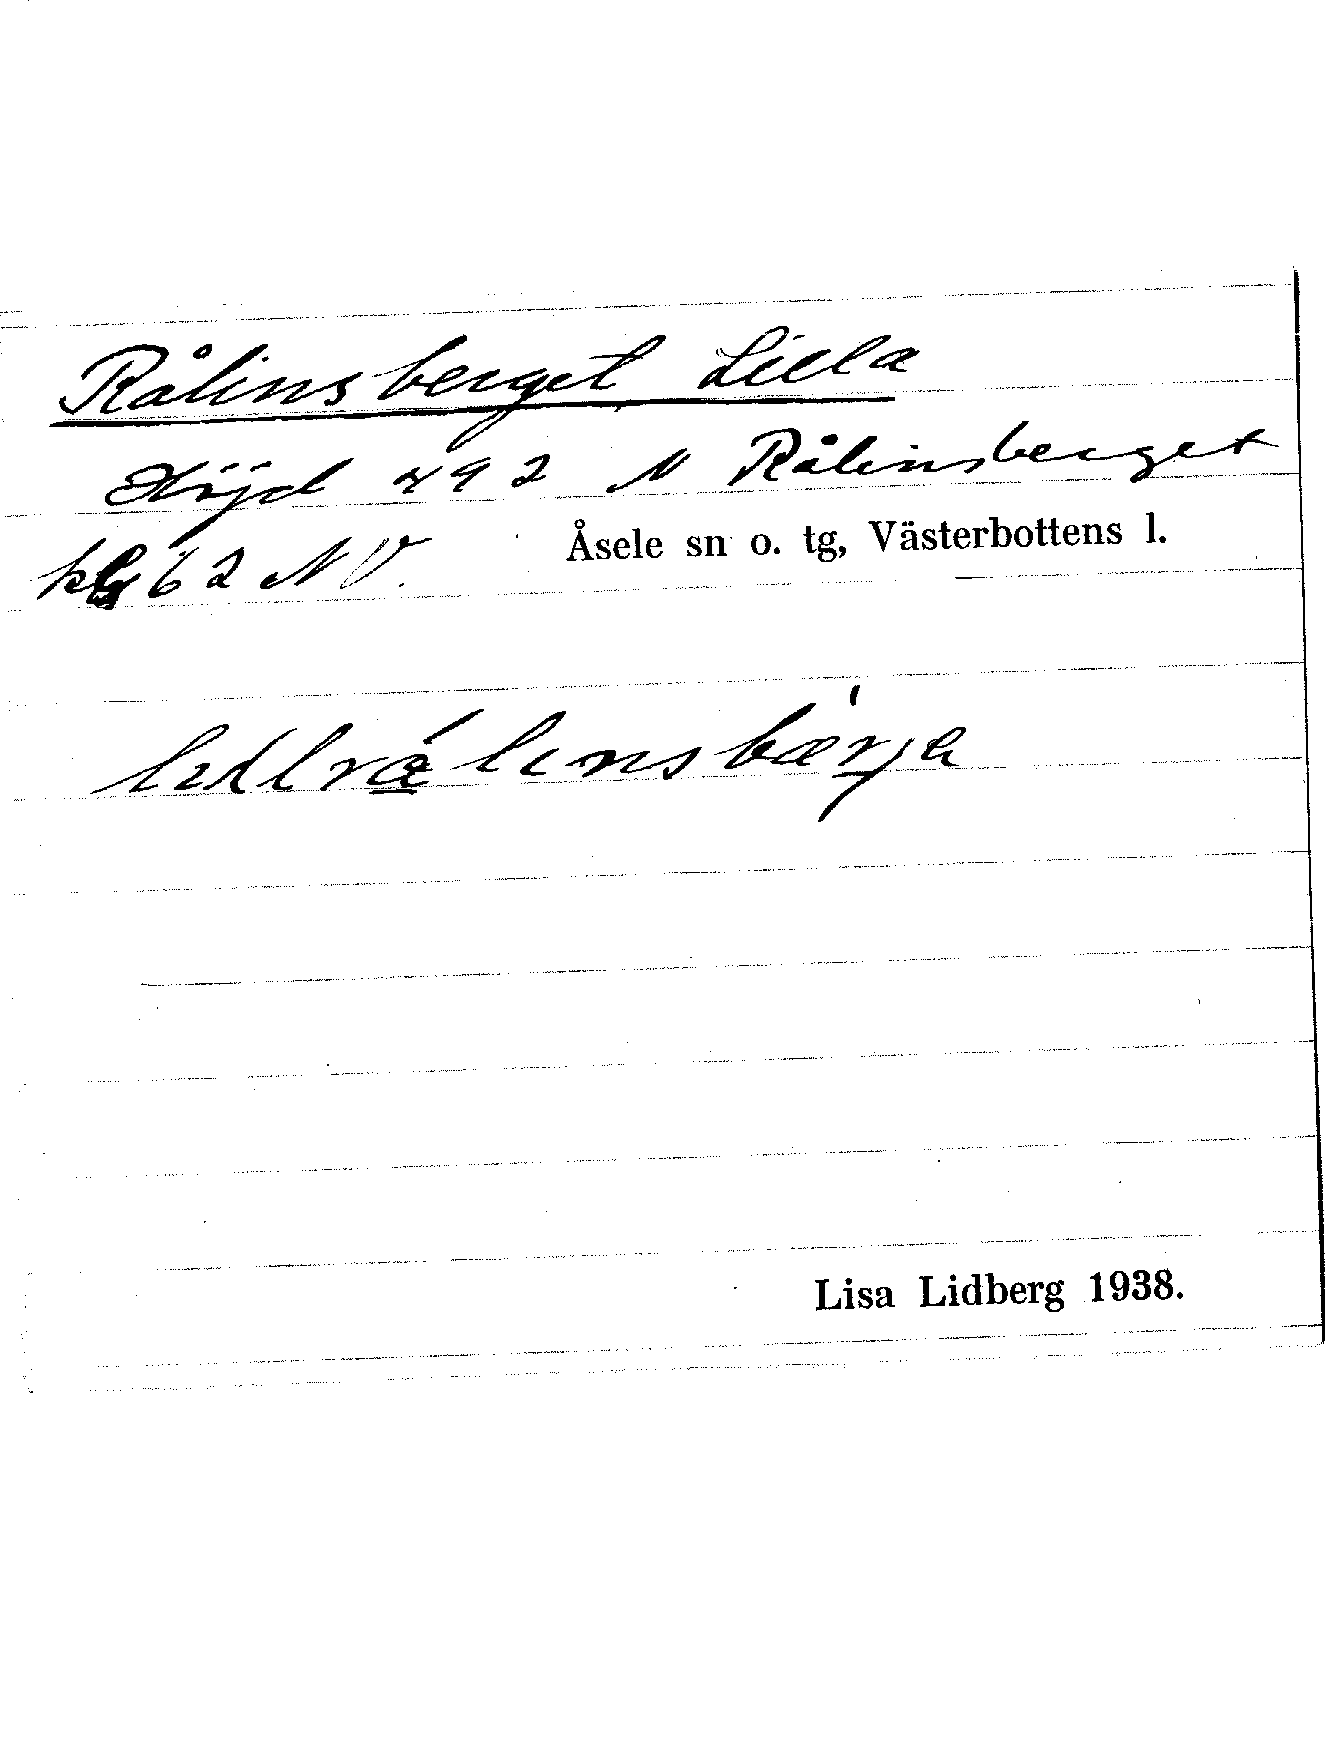 Rålinsberget, Lilla
Höjd 492 N Rålinsberget
kbl 62 NV. Åsele sn o. tg, Västerbottens l.
Lisa Lidberg 1938.